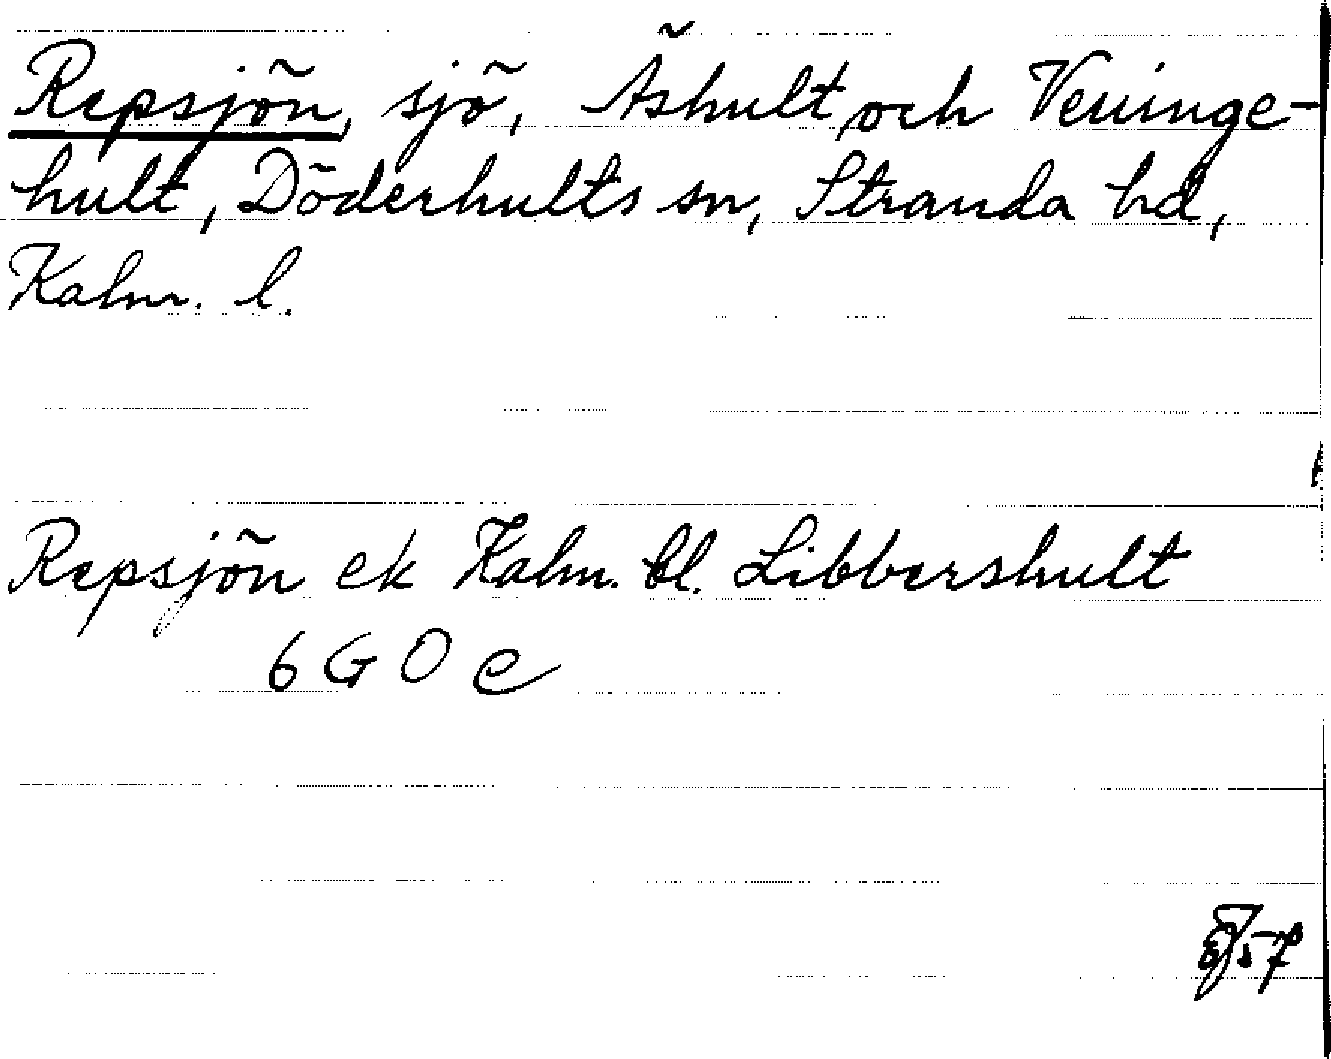 Repsjön, sjö, Äshult och Veninge-
hult, Döderhults sn, Stranda hd,
Kalm. l.
Repsjön ek Kalm. bl. Libbershult
6 G 0 e
57